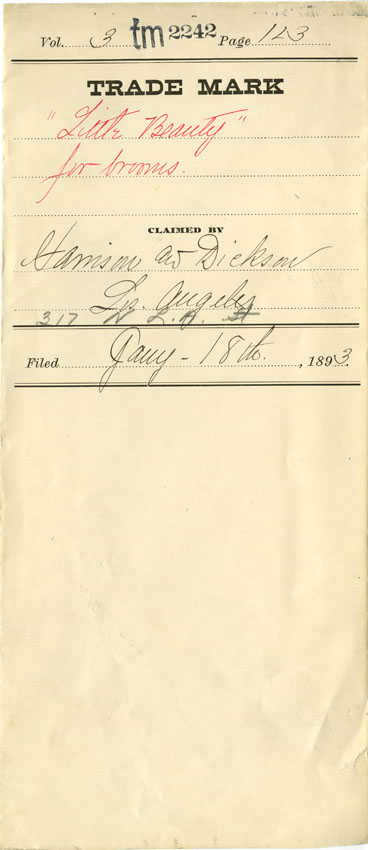 Vol. 3 tm 2242 Page 123
TRADE MARK
"Little Beauty"
for brooms.
CLAIMED BY
Harrison and Dickson
Los Angeles
317 N L.A. St
Filed Jany - 18th, 1893.